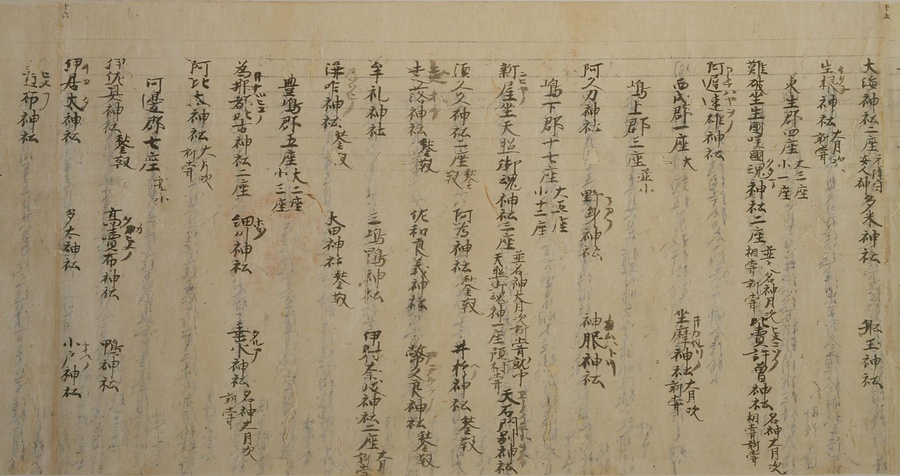 十五
大海神社二座 元津守安人神 多米神社 服玉神社
生根神社 大月次新嘗
東生郡四座 大三座小一座
難破坐生國咲國魂神社二座 並名神月次相嘗新嘗 比賣許曽神社 名神大月次相嘗新嘗
阿遅速雄神社
西成郡一座 大 坐摩神社 大月次新嘗
嶋上郡三座 並小
阿久刀神社 野身神社 神服神社
嶋下郡十七座 大五座小十二座
新屋坐天照御魂神社三座 並名神大月次新嘗就中天照御魂神一座預相嘗 天石戸別神社
須久々神社二座 鍬靫 阿為神社 鍬靫 井於神社 鍬靫
走落神社 鍬靫 佐和良義神社 幣久良神社 鍬靫
牟礼神社 三嶋鴨神社 伊射奈岐神社二座 大月新嘗
溝咋神社 鍬靫 太田神社 鍬靫
豊嶋郡五座 大二座小三座
為那都比古神社二座 細川神社 垂水神社 名神大月次新嘗
阿比太神社 大月次新嘗
河邊郡七座 並小
伊佐具神社 鍬靫 高賣布神社 鴨神社
伊居太神社 多太神社 小戸神社
賣布神社
十六